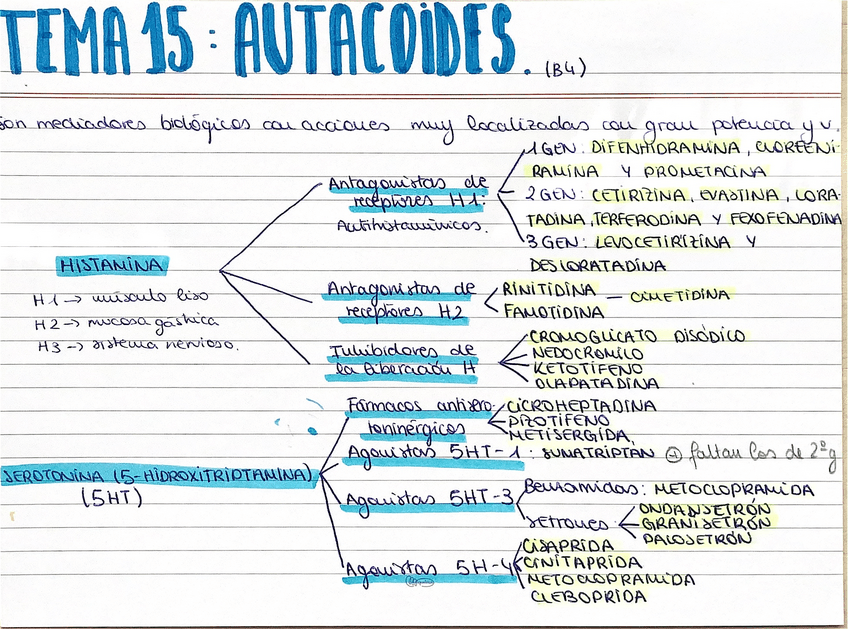 TEMA 15: AUTACOIDES. (B4)
Son mediadores biológicos con acciones muy localizadas con gran potencia y v.
HISTAMINA
H1 -> músculo liso
H2 -> mucosa gástrica
H3 -> sistema nervioso.
Antagonistas de
receptores H1:
Antihistamínicos.
1 GEN: DIFENHIDRAMINA, CLOREENI-
RAMINA Y PROMETACINA
2 GEN: CETIRIZINA, EVASTINA, LORA-
TADINA, TERFERODINA Y FEXOFENADINA
3 GEN: LEVOCETIRIZINA Y
DESLORATADINA
Antagonistas de
receptores H2
RINITIDINA
FAMOTIDINA
— CIMETIDINA
Inhibidores de
la liberación H
CROMOGLICATO DISÓDICO
NEDOCROMILO
KETOTIFENO
OLAPATADINA
SEROTONINA (5-HIDROXITRIPTAMINA)
(5HT)
Fármacos antisero-
toninérgicos
CICROHEPTADINA
PIZOTIFENO
METISERGIDA,
Agonistas 5HT-1: SUMATRIPTAN faltan los de 2º g
Agonistas 5HT-3
Benzamidas: METOCLOPRAMIDA
setrones
ONDANSETRÓN
GRANISETRÓN
PALOSETRÓN
Agonistas 5H-4
CISAPRIDA
CINITAPRIDA
METOCLOPRAMIDA
CLEBOPRIDA